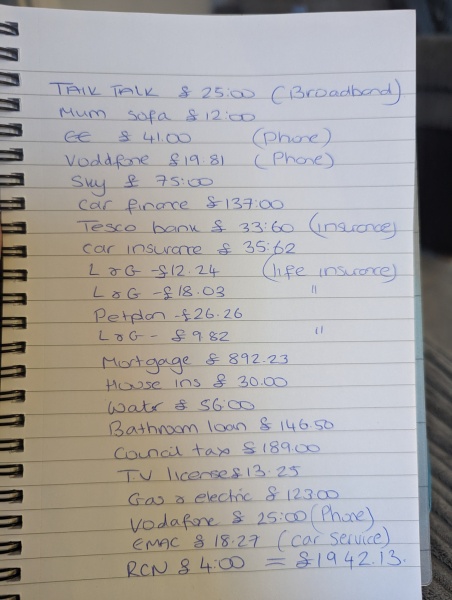 TAlK TALK £ 25:00 (Broadband)
Mum sofa £12:00
EE £ 41.00 (Phone)
Voddfone £19.81 (Phone)
Sky £ 75:00
Car finance £137:00
Tesco bank £ 33:60 (insurance)
Car insurance £ 35:62
L & G -£12.24 (life insurance)
L & G -£18.03 "
Petplan -£26.26
L & G - £9.82 "
Mortgage £ 892.23
House ins £ 30.00
Watr £ 56:00
Bathroom loan £ 146.50
Council tax £189.00
TV license £13.25
Gas & electric £ 123.00
Vodafone £ 25:00 (Phone)
EMAC £ 18.27 (Car Service)
RCN £ 4:00 = £1942.13.